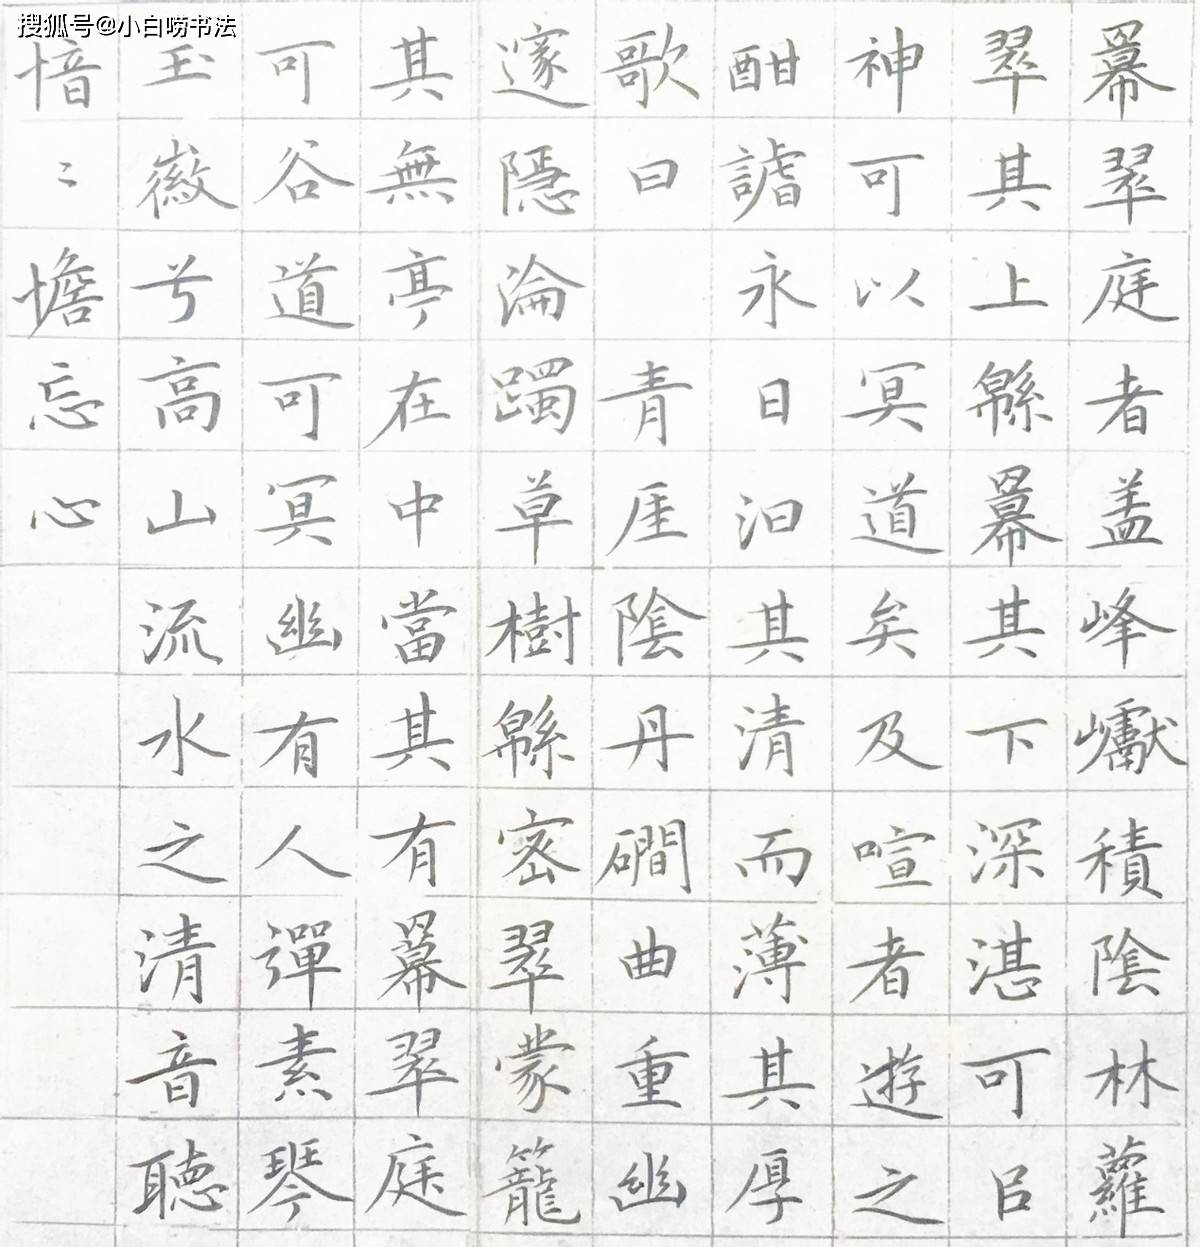 搜狐号@小白唠书法
羃翠庭者盖峰巘積陰林蘿
翠其上緜羃其下深湛可㠯
神可以冥道矣及喧者遊之
酣謔永日汩其清而薄其厚
歌曰 青厓陰丹磵曲重幽
邃隱淪躅草樹緜密翠蒙籠
其無亭在中當其有羃翠庭
可谷道可冥幽有人彈素琴
玉徽兮高山流水之清音聽
愔〻憺忘心